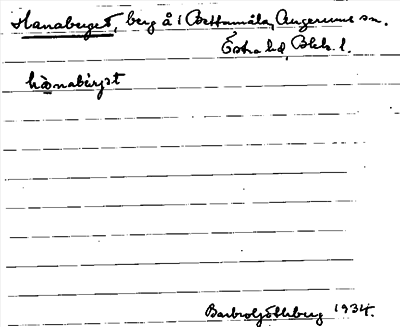 Hanaberget, berg å i Bettamåla, Augerums sn.
Östra hd, Blek. l.
hànabärjət
Barbro Göthberg 1934.